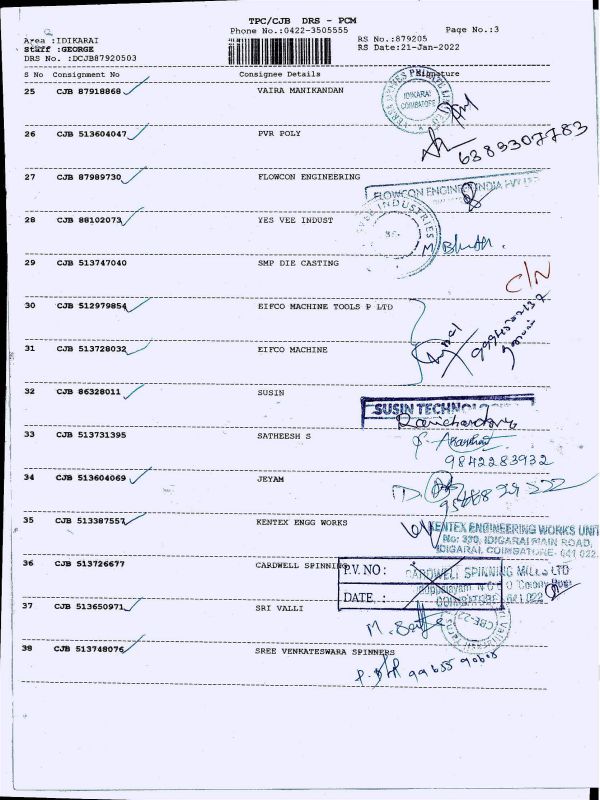 TPC/CJB DRS - PCM
Phone No.:0422-3505555 Page No.:3
Area :IDIKARAI RS No.:879205
Staff :GEORGE RS Date:21-Jan-2022
DRS No. :DCJB87920503
S No Consignment No Consignee Details Signature
25 CJB 87918868 VAIRA MANIKANDAN
IDIKARAI
COIMBATORE
26 CJB 513604047 PVR POLY
6389307783
27 CJB 87989730 FLOWCON ENGINEERING
FLOWCON ENGINE INDIA PVT LTD
28 CJB 88102073 YES VEE INDUST
INDUSTRIES
29 CJB 513747040 SMP DIE CASTING
C/N
30 CJB 512979854 EIFCO MACHINE TOOLS P LTD
31 CJB 513728032 EIFCO MACHINE
32 CJB 86328011 SUSIN
SUSIN TECHNO
33 CJB 513731395 SATHEESH S
9842283932
34 CJB 513604069 JEYAM
35 CJB 513387557 KENTEX ENGG WORKS
KENTEX ENGINEERING WORKS UNIT
No: 330, IDIGARAI MAIN ROAD,
IDIGARAI, COIMBATORE- 641 022.
36 CJB 513726677 CARDWELL SPINNING
P.V. NO : CARDWELL SPINNING MILLS LTD
DATE. : COIMBATORE 641 022
37 CJB 513650971 SRI VALLI
38 CJB 513748076 SREE VENKATESWARA SPINNERS